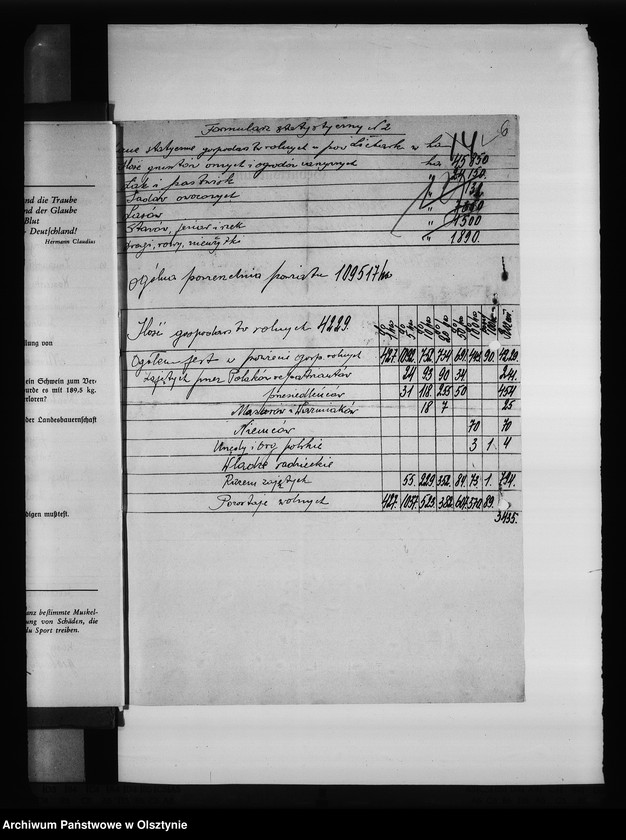 nd die Traube
nd der Glaube
Blut
Deutschland!
Hermann Claudius
llung von
ein Schwein zum Ver-
urde es mit 189.5 kg.
rloren?
der Landesbauernschaft
digen mußtest.
anz bestimmte Muskel-
ung von Schäden, die
du Sport treiben.
6
Formularz statystyczny N 2
statyczne gospodarstw rolnych w pow. w ha 14
Ilość gruntów ornych i ogrodów warzywnych ha 45850
Łąk i pastwisk "
Sadów owocowych "
Lasów "
Stawów, jezior i rzek " 4500
drogi, rowy, nieużytki " 1890.
Ogólna powierzchnia powiatu 109517 ha
Ilość gospodarstw rolnych 4229.
Ogółem jest w powiecie gosp. rolnych 427. 1092. 752. 734. 90 4229.
zajętych przez Polaków repatriantów 24 93 90 34 241.
przesiedleńców 31 118. 255 50 454
Mazurów i Warmiaków 18 7 25
Niemców 70 70
Urzędy i org. polskie 3 1. 4
Władze radzieckie
Razem zajętych 55. 229. 352. 84. 73 1. 794.
Pozostaje wolnych 427. 1037. 523. 382. 607. 370. 89.
3435.
Archiwum Państwowe w Olsztynie